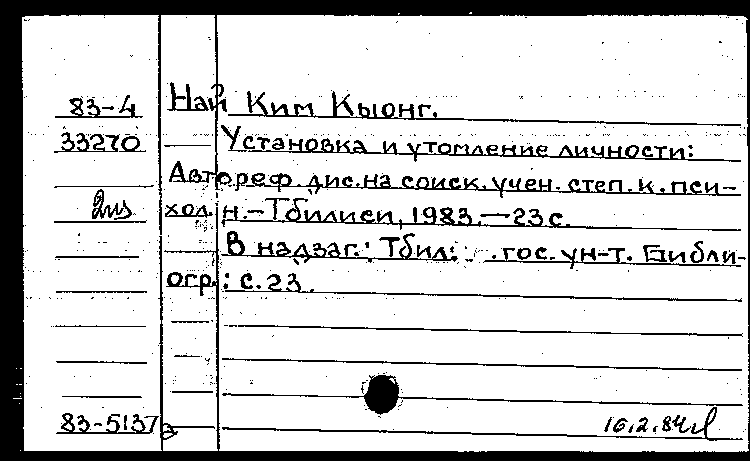 83-4 Най Ким Кыонг.
33270 Установка и утомление личности:
Автореф. дис. на соиск. учен. степ. к. пси-
хол. н.-Тбилиси, 1983.-23 с.
В надзаг.: Тбил. гос. ун-т. Библи-
огр.: с. 23.
83-5137
16.2.84